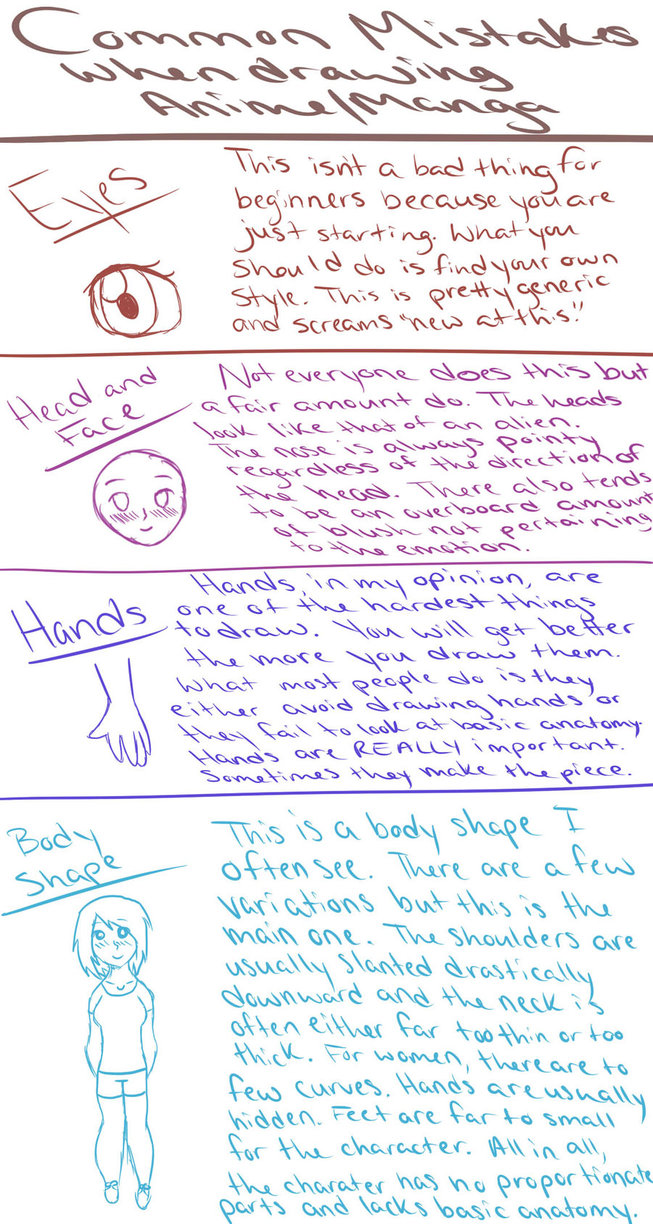 Common Mistakes
when drawing
Anime/Manga
Eyes
This isn't a bad thing for
beginners because you are
just starting. What you
should do is find your own
style. This is pretty generic
and screams "new at this."
Head and
Face
Not everyone does this but
a fair amount do. The heads
look like that of an alien.
The nose is always pointy
regardless of the direction of
the head. There also tends
to be an overboard amount
of blush not pertaining
to the emotion.
Hands
Hands, in my opinion, are
one of the hardest things
to draw. You will get better
the more you draw them.
What most people do is they
either avoid drawing hands or
they fail to look at basic anatomy.
Hands are REALLY important.
Sometimes they make the piece.
Body
Shape
This is a body shape I
often see. There are a few
variations but this is the
main one. The shoulders are
usually slanted drastically
downward and the neck is
often either far too thin or too
thick. For women, there are to
few curves. Hands are usually
hidden. Feet are far to small
for the character. All in all,
the charater has no proportionate
parts and lacks basic anatomy.